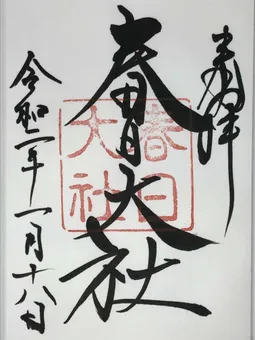 奉拝
春日大社
春日大社
令和二年一月十八日